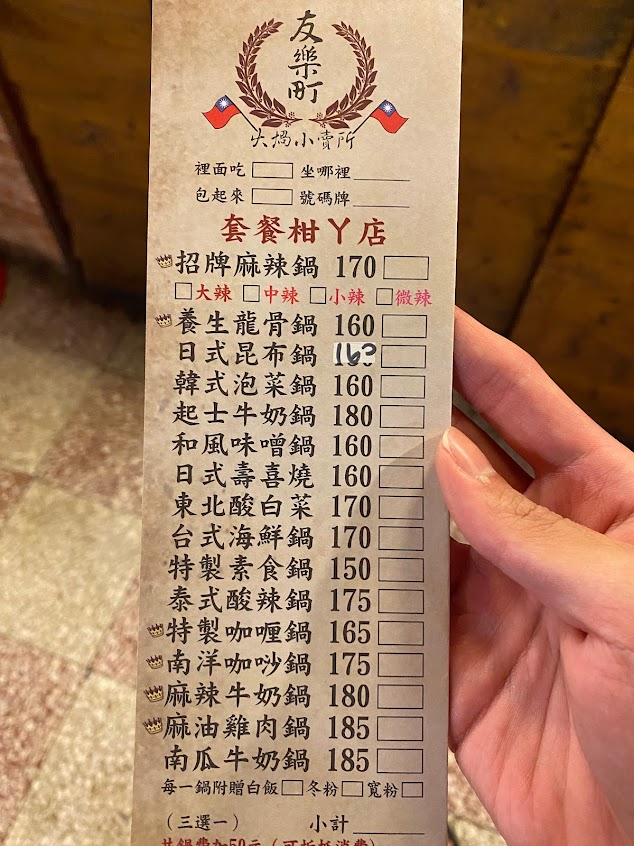 友樂町
火鍋小賣所
裡面吃 坐哪裡
包起來 號碼牌
套餐柑ㄚ店
招牌麻辣鍋 170
大辣 中辣 小辣 微辣
養生龍骨鍋 160
日式昆布鍋
韓式泡菜鍋 160
起士牛奶鍋 180
和風味噌鍋 160
日式壽喜燒 160
東北酸白菜 170
台式海鮮鍋 170
特製素食鍋 150
泰式酸辣鍋 175
特製咖喱鍋 165
南洋咖吵鍋 175
麻辣牛奶鍋 180
麻油雞肉鍋 185
南瓜牛奶鍋 185
每一鍋附贈白飯 冬粉 寬粉
（三選一） 小計
共鍋費加50元（可折抵消費）